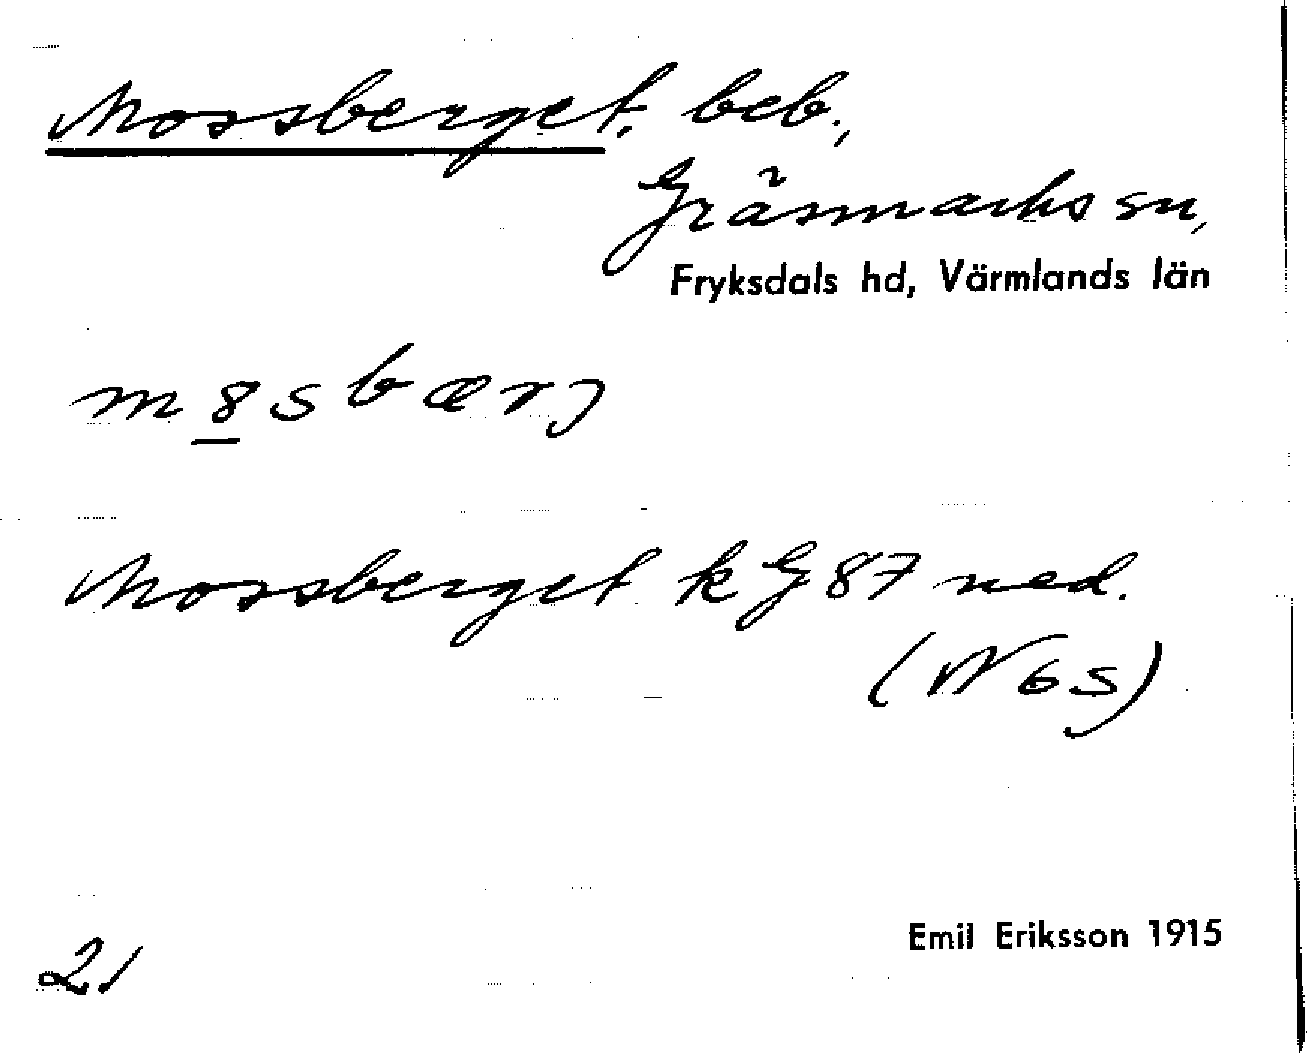 Mossberget, beb.,
Gräsmarks sn,
Fryksdals hd, Värmlands län
m8sbærj
Mossberget k G 87 ned.
(W 6 s)
Emil Eriksson 1915
21